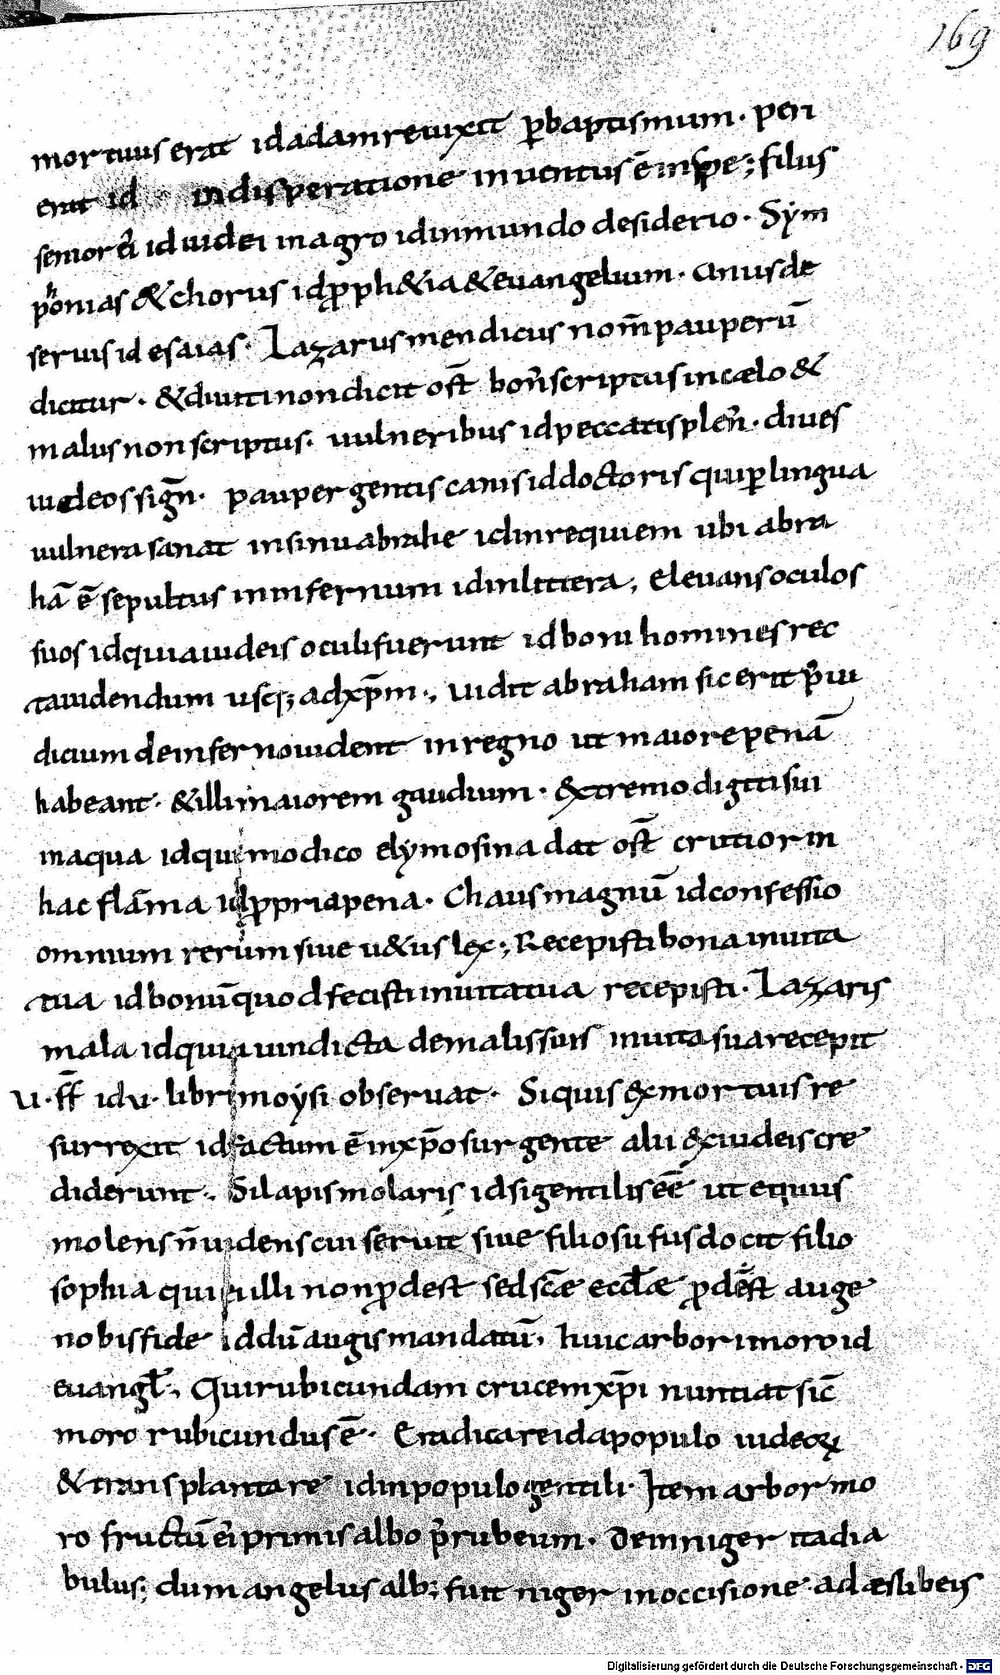 169
mortuus erat id adam reuixit p̄ baptismum · peri
erat id in disperatione inuentus ē in spe ; filius
senior eī id iudei in agro id in mundo desiderio · Sym
phonias & chorus id p̄ph&ia & euangelium · unus de
seruis id esaias · Lazarus mendicus nom̄ pauperū
dicitur · & diuiti non dicit ost̄ bon̄ scriptus in cælo &
malus non scriptus · uulneribus id peccatis plen̄ · diues
iudeos sign̄ · pauper gentis canis id doctoris qui p̄ lingua
uulnera sanat in sinu abrahe id in requiem ubi abra
hā ē sepultus in infernum id in littera , eleuans oculos
suos id quia iudeis oculi fuerunt id boni homines rec
ta uidendum usq; ad xp̄m ·, uidit abraham sic erit p̄ iu
dicium de inferno uident in regno ut maiore penā
habeant · & illi maiorem gaudium · extremo digiti sui
in aqua id qui modico elymosina dat ost̄ crutior in
hac flām̄a id p̄pria pena · Chaus magnū id confessio
omnium rerum siue u&us lex ·, Recepisti bona in uita
tua id bonū quod fecisti in uita tua recepisti · Lazaris
mala id quia uindicta de malis suis in uita sua recepit
u · ff̄ id u · libri moysi obseruat · Si quis ex mortuis re
surrexit id factum ē in xp̄o surgente alii ex iudeis cre
diderunt ·, Si lapis molaris id si gentilis eē ut equus
molens n̄ uidens cui seruit siue filiosufus docit filio
sophia qui illi non p̄dest sed sc̄æ eccl̄æ p̄dest auge
nobis fide id dū augis mandatū , huic arbori moro id
euangl̄ ·, Qui rubicundam crucem xp̄i nuntiat sic̄
moro rubicundus ē · Eradicare id a populo iudeoꝝ
& transplantare id in populo gentili · Item arbor mo
ro fructū eī primis albo p̄ rubeum · dein niger ita dia
bulus ; dum angelus alb; fuit niger in occisione ad æslibeis
Digitalisierung gefördert durch die Deutsche Forschungsgemeinschaft - DFG